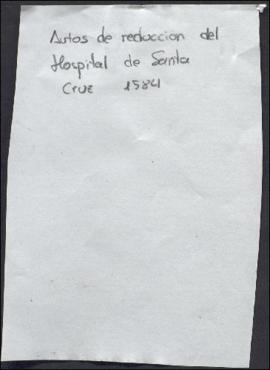 Autos de reduccion del
Hospital de Santa
Cruz 1584